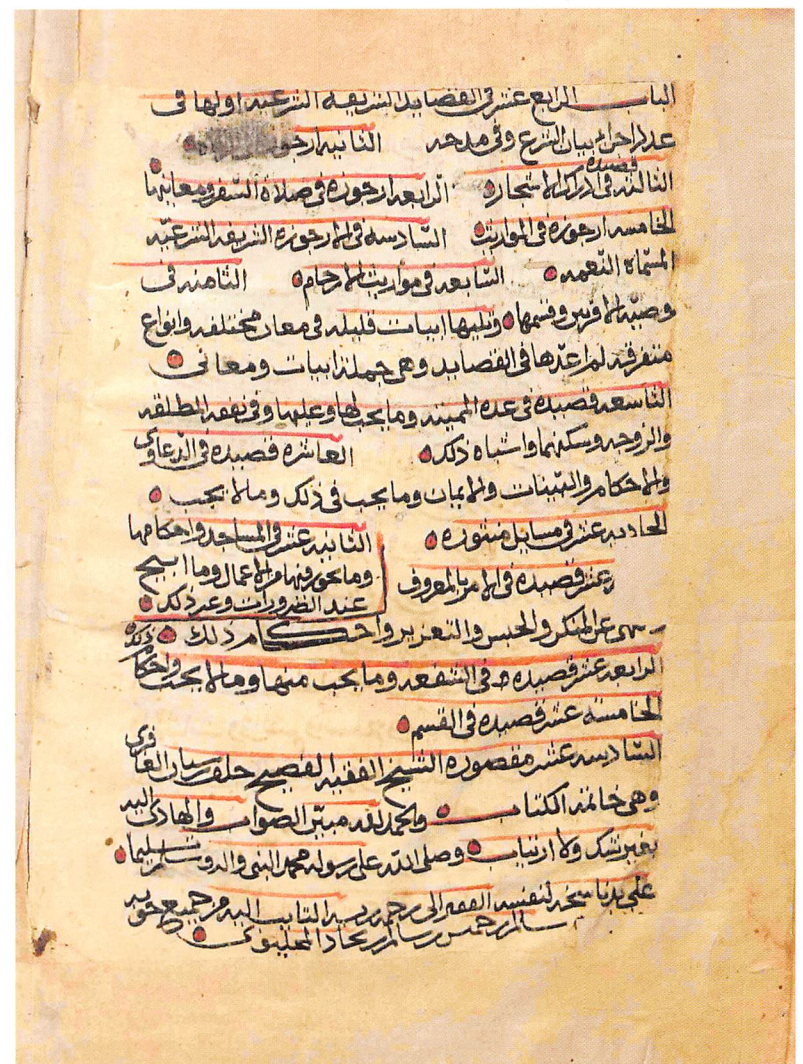 الباب الرابع عشر في القصايد الشريفه الشرعيه اولها في
عدد اجزاء بيان الشرع وفي مدحه الثانيه ارجوزة
الثالثه قصيده في ادراك الاشجار الرابعه ارجوزه في صلاة السفر ومعانيها
الخامسه ارجوزه في المواريث السادسه في الارجوزه الشريفه الشرعيه
المسماه النعمه السابعه في مواريث الارحام الثامنه في
وصية الاقربين وقسمها وتليها ابيات قليله في معان مختلفه وانواع
متفرقه لم اعدها في القصايد وهي جملة ابيات ومعاني
التاسعه قصيده في عدة المميته وما يجب لها وعليها وفي نفقه المطلقه
والزوجه وسكنهما واشباه ذلك العاشره قصيده في الدعاوي
والاحكام والبينات والايمان وما يجب في ذلك وما لا يجب
الحاديه عشر في مسايل منثوره الثانيه عشر في المساجد واحكامها
وما يجوز فيها من الاعمال وما ابيح
عند الضرورات وغير ذلك
عشر قصيده في الامر بالمعروف
عن المنكر والحبس والتعزير واحكام ذلك
الرابعه عشر قصيده في الشفعه وما يجب منها وما لا يجب واحكام ذلك
الخامسه عشر قصيده في القسم
السادسه عشر مقصورة الشيخ الفقيه الفصيح خلف بن سنان الغافري
وهي خاتمة الكتاب والحمد لله مبين الصواب والهادي اليه
بغير شك ولا ارتياب وصلى الله على رسوله محمد النبي واله وسلم تسليما
على يد ناسخه لنفسه الفقير الى رحمة ربه التايب اليه من جميع حوبه
سالم بن خميس بن سالم بن نجاد المحليوي